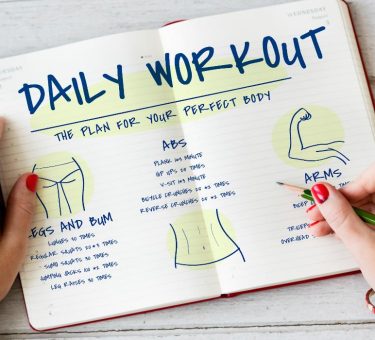 DAILY WORKOUT
THE PLAN FOR YOUR PERFECT BODY
LEGS AND BUM
LUNGES 30 TIMES
REGULAR SQUATS 20*3 TIMES
SUMO SQUATS 30 TIMES
JUMPING JACKS 100 *2 TIMES
LEG RAISES 30 TIMES
ABS
PLANK MINUTE
UPS 20 TIMES
V-SIT MINUTE
BICYCLE CRUNCHES 20 *2 TIMES
REVERSE CRUNCHES 20 *2 TIMES
ARMS
OVERHEAD